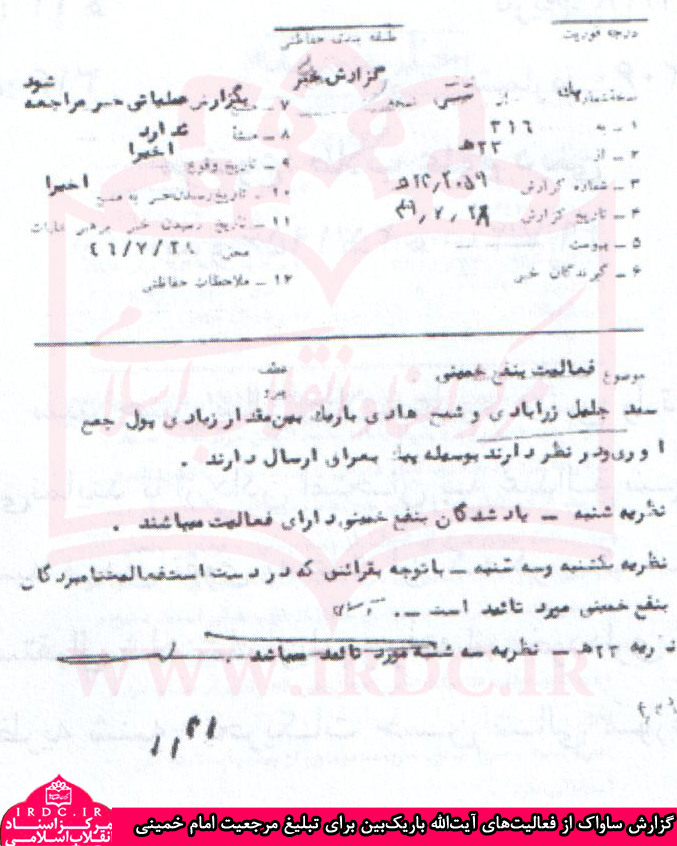 درجه فوریت
طبقه بندی حفاظتی
گزارش خبر
نسخه شماره یک
۱ ـ به ۳۱۶
۲ ـ از ۲۳ه‍
۳ ـ شماره گزارش
۴ ـ تاریخ گزارش
۵ ـ پیوست
۶ ـ گیرندگان خبر
۷ ـ بگزارش عملیاتی خبر مراجعه شود
۸ ـ منشأ ندارد
۹ ـ تاریخ وقوع اخیرا
۱۰ ـ تاریخ رسیدن خبر به منبع اخیرا
۱۱ ـ تاریخ رسیدن خبر برهبر عملیات
۱۲ ـ ملاحظات حفاظتی
موضوع فعالیت بنفع خمینی
عطف
سید جلیل زرابادی و شیخ هادی باریک بین مقدار زیادی پول جمع
اوری و در نظر دارند بوسیله پیک بعراق ارسال دارند .
نظریه شنبه ـ یادشدگان بنفع خمینی دارای فعالیت میباشند .
نظریه یکشنبه وسه شنبه ـ باتوجه بقرائنی که در دست است فعالیت نامبردگان
بنفع خمینی مورد تائید است ـ.
نظریه ۲۳ه‍ ـ نظریه سه شنبه مورد تائید میباشد .
WWW.IRDC.IR
IRDC.IR
مرکز اسناد
انقلاب اسلامی
گزارش ساواک از فعالیت‌های آیت‌الله باریک‌بین برای تبلیغ مرجعیت امام خمینی